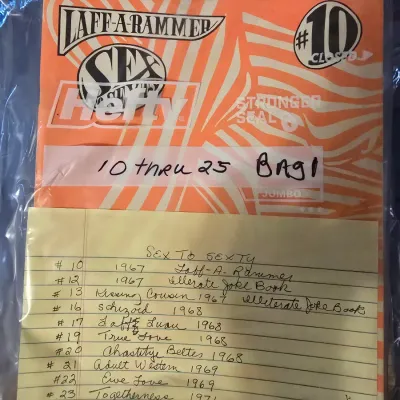 LAFF-A-RAMMER
#10
CLOSED
SEX
Hefty
STRONGER
SEAL
10 THRU 25 BAG 1
JUMBO
SEX TO SEXTY
#10 1967 Laff-A-Rammer
#12 1967 illerate Joke Book
#13 Kissing Cousin 1967 illiterate Joke Book
#16 Schizoid 1968
#17 Laff Luau 1968
#19 True Love 1968
#20 Chastitye Beltes 1968
#21 Adult Western 1969
#22 Ewe Love 1969
#23 Togetherness 1971